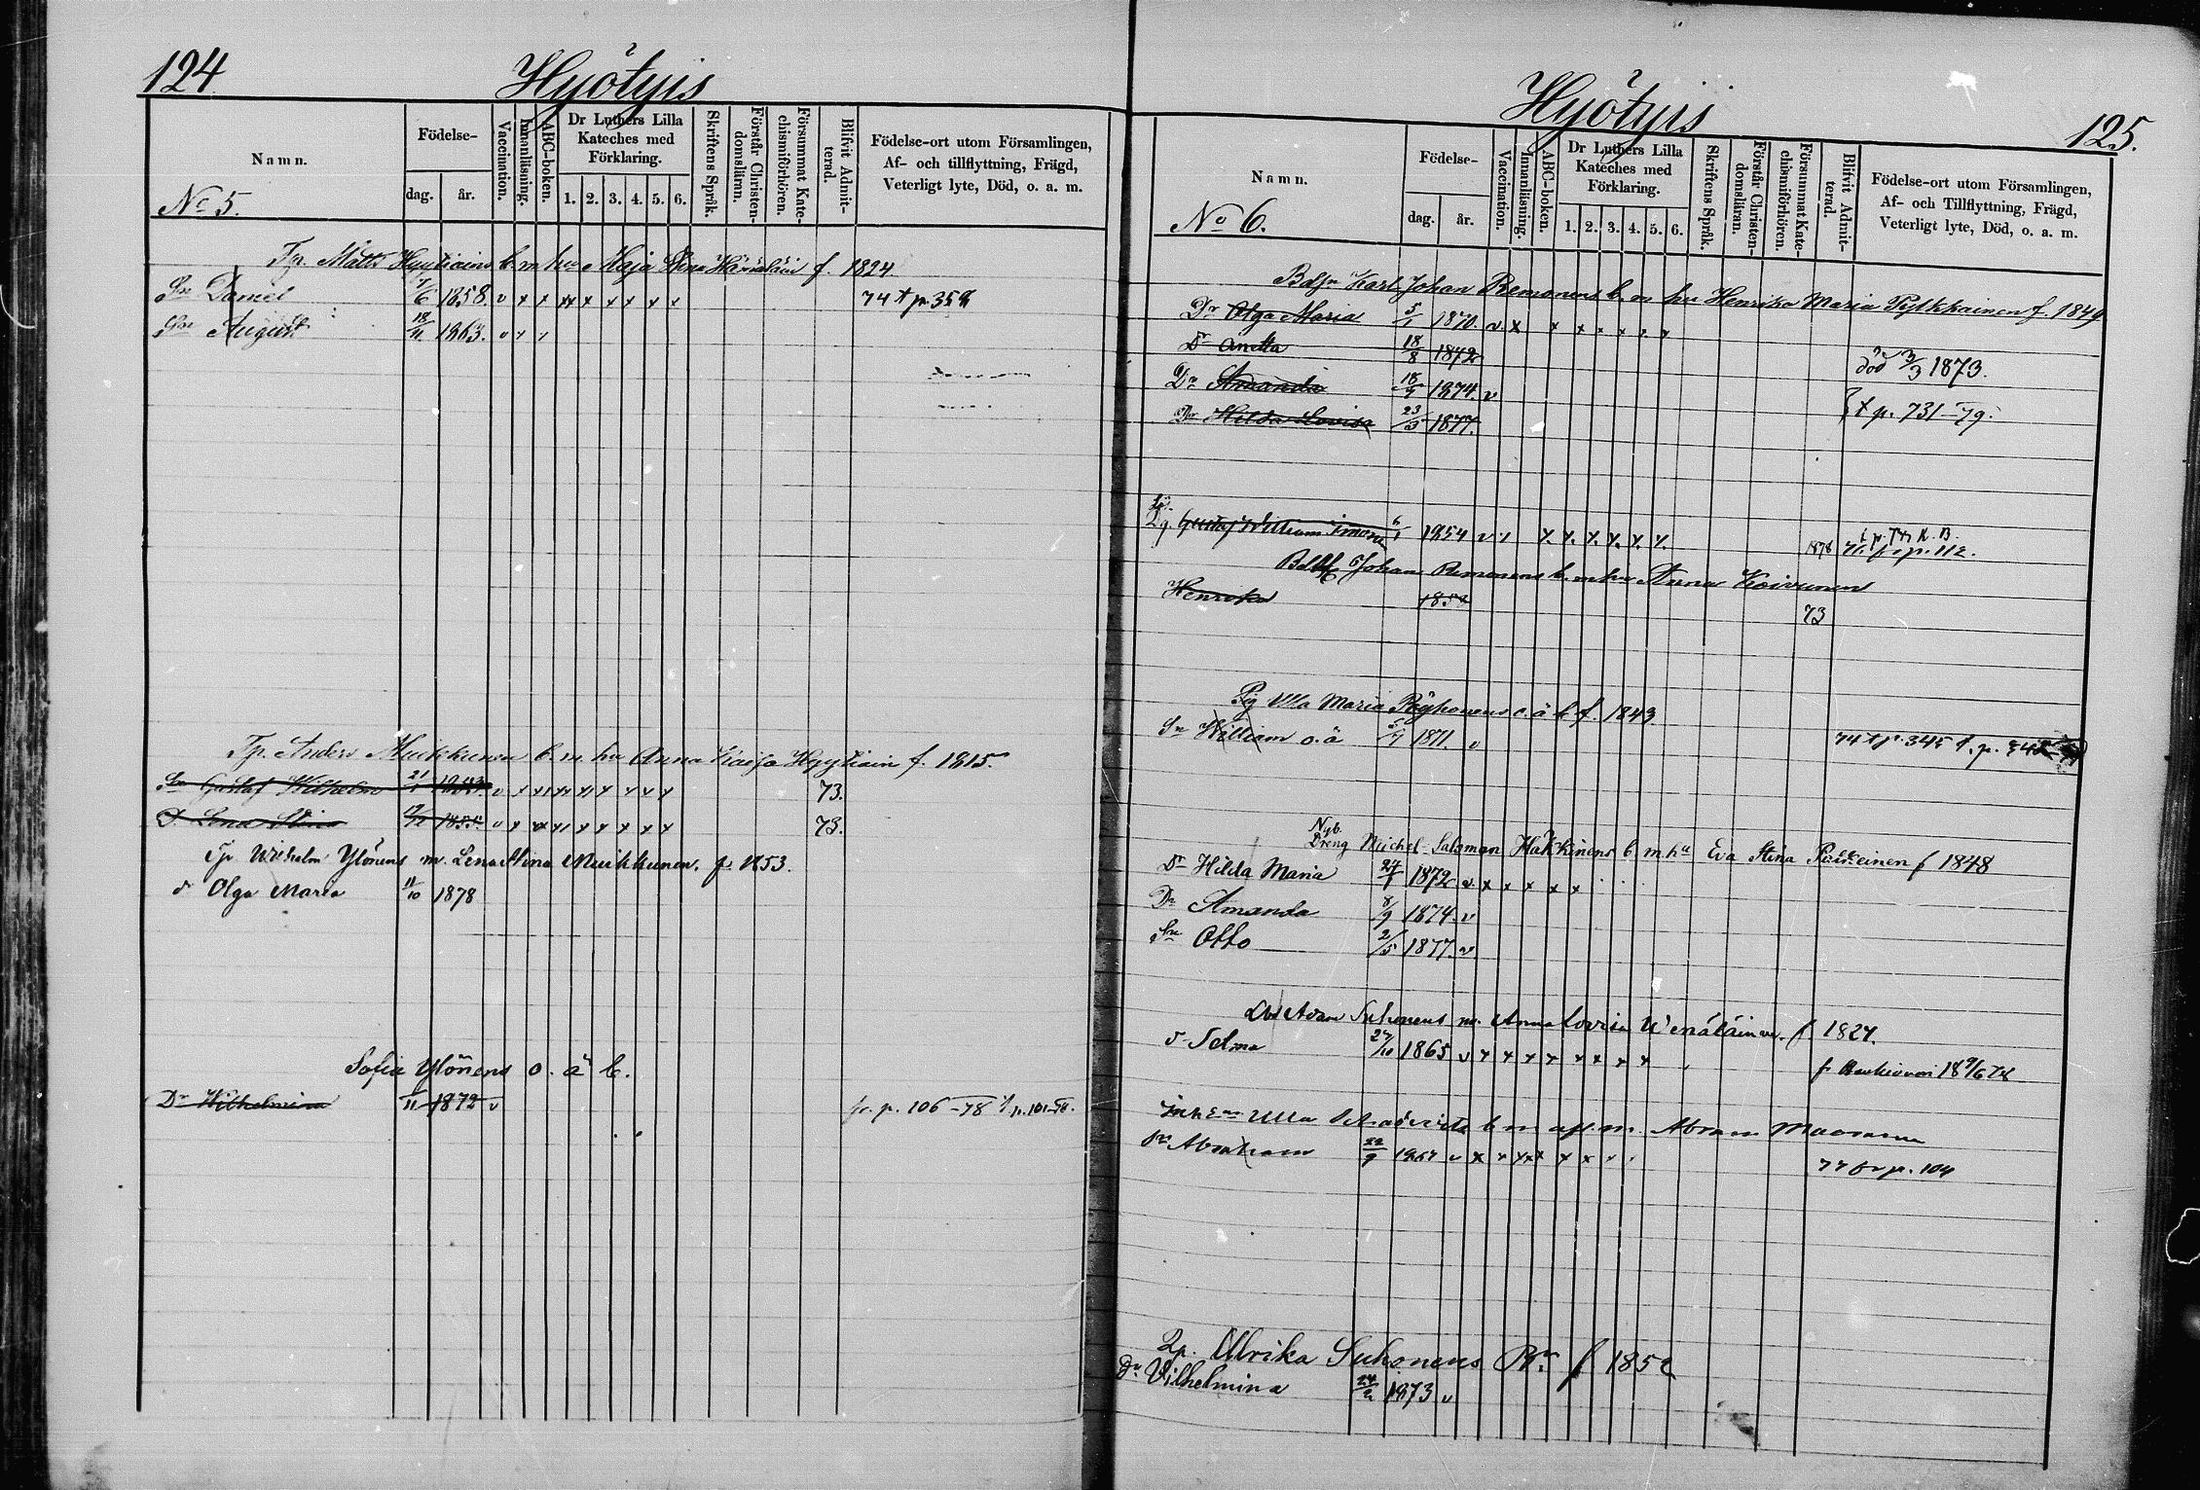 124
Hyötyis
Namn.
Födelse-
dag.
år.
Vaccination.
Innanläsning.
ABC-boken.
Dr Luthers Lilla
Kateches med
Förklaring.
1. 2. 3. 4. 5. 6.
Skriftens Språk.
Förstår Christen-
domsläran.
Försummat Kate-
chismiförhören.
Blifvit Admit-
terad.
Födelse-ort utom Församlingen,
Af- och tillflyttning, Frägd,
Veterligt lyte, Död, o. a. m.
No 5.
Tp. Matts Hyytiäins b. m. hu Maja Stina f. 1824
Sn Daniel 1858. v x x xx x x x x x 74 t p. 358
Sn August 18/11 1863. v x x
Tp. Anders Muikkunen b. m. hu Anna Caisa Hyytiäin f. 1815.
Sn Gustaf Wilhelm 21/1 73.
D. Lena Stina 1855 73.
Tp. Wilhelm Ylönens m. Lena Stina Muikkunen. f. 1853.
d Olga Maria 11/10 1878
Sofia Ylönens o. ä b.
Dr Wilhelmina /11 1872 v fr. p. 106-78 t p. 101-78.
Hyötyis
125.
Namn.
Födelse-
dag.
år.
Vaccination.
Innanläsning.
ABC-boken.
Dr Luthers Lilla
Kateches med
Förklaring.
1. 2. 3. 4. 5. 6.
Skriftens Språk.
Förstår Christen-
domsläran.
Försummat Kate-
chismiförhören.
Blifvit Admit-
terad.
Födelse-ort utom Församlingen,
Af- och Tillflyttning, Frägd,
Veterligt lyte, Död, o. a. m.
No 6.
Karl Johan Remonens b. m. hu Henrika Maria Pylkkainen f. 1849
Dr Olga Maria 5/1 1870. v. x x x x x x x
Dr Anetta 18/8 1872 död 3/3 1873.
Dr Amanda 18/9 1874. v
Dr Hilda Lovisa 23/3 1877. t p. 731-79.
Gustaf William Imonen 1854 v x x. x. x. x. x. x. 1878 76 fr p. 112.
Johan Remonens b. m. hu Anna Koivunen
Henrika 73
Pig Ulla Maria Pöyhönens o. ä b f. 1843
Sn William o. ä 1871. v 74 t p. 345
Ngb.
Dreng Michel Saloman Häkkinens b. m hu Eva Stina f 1848
Dr Hilda Maria 24/1 1872 v. x x x x x
Dr Amanda 8/9 1874. v
Sn Otto 2/5 1877. v
Adam Suhonens m. Anna Lovisa Wenäläinen. f. 1824.
d Selma 27/10 1865 v x x x x x x x x
Inh Enk Ulla b. m afl. m. Abram
Sn Abraham 22/9 77 fr p. 104
Ulrika Suhonens f 185
Dr Vilhelmina 24/2 1873 v